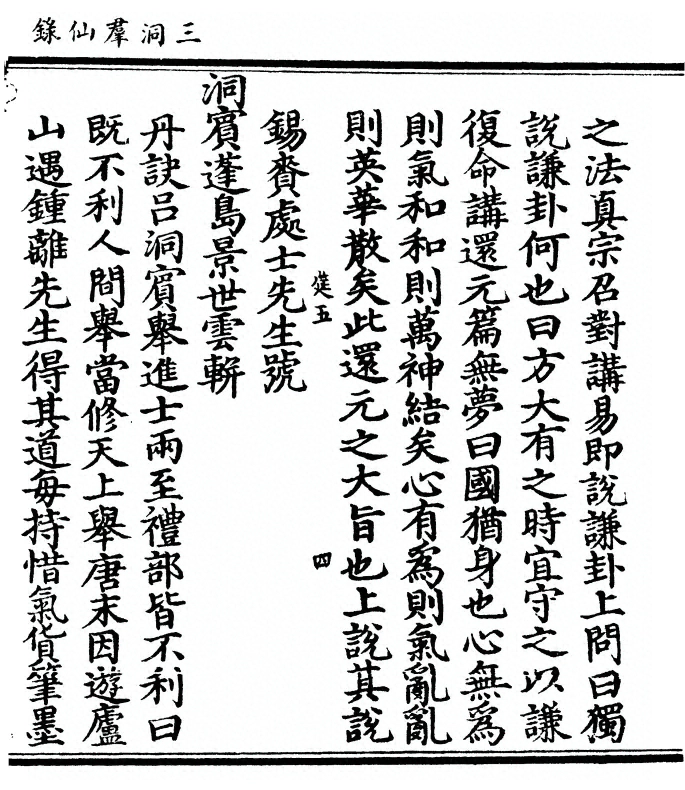 三洞羣仙錄
之法真宗召對講易即說謙卦上問曰獨
說謙卦何也曰方大有之時宜守之以謙
復命講還元篇無夢曰國猶身也心無爲
則氣和和則萬神結矣心有爲則氣亂亂
則英華散矣此還元之大旨也上說其說
筵五
四
錫賚處士先生號
洞賓蓬島景世雲輧
丹訣呂洞賓舉進士兩至禮部皆不利曰
既不利人間舉當修天上舉唐末因遊廬
山遇鍾離先生得其道每持惜氣貨筆墨